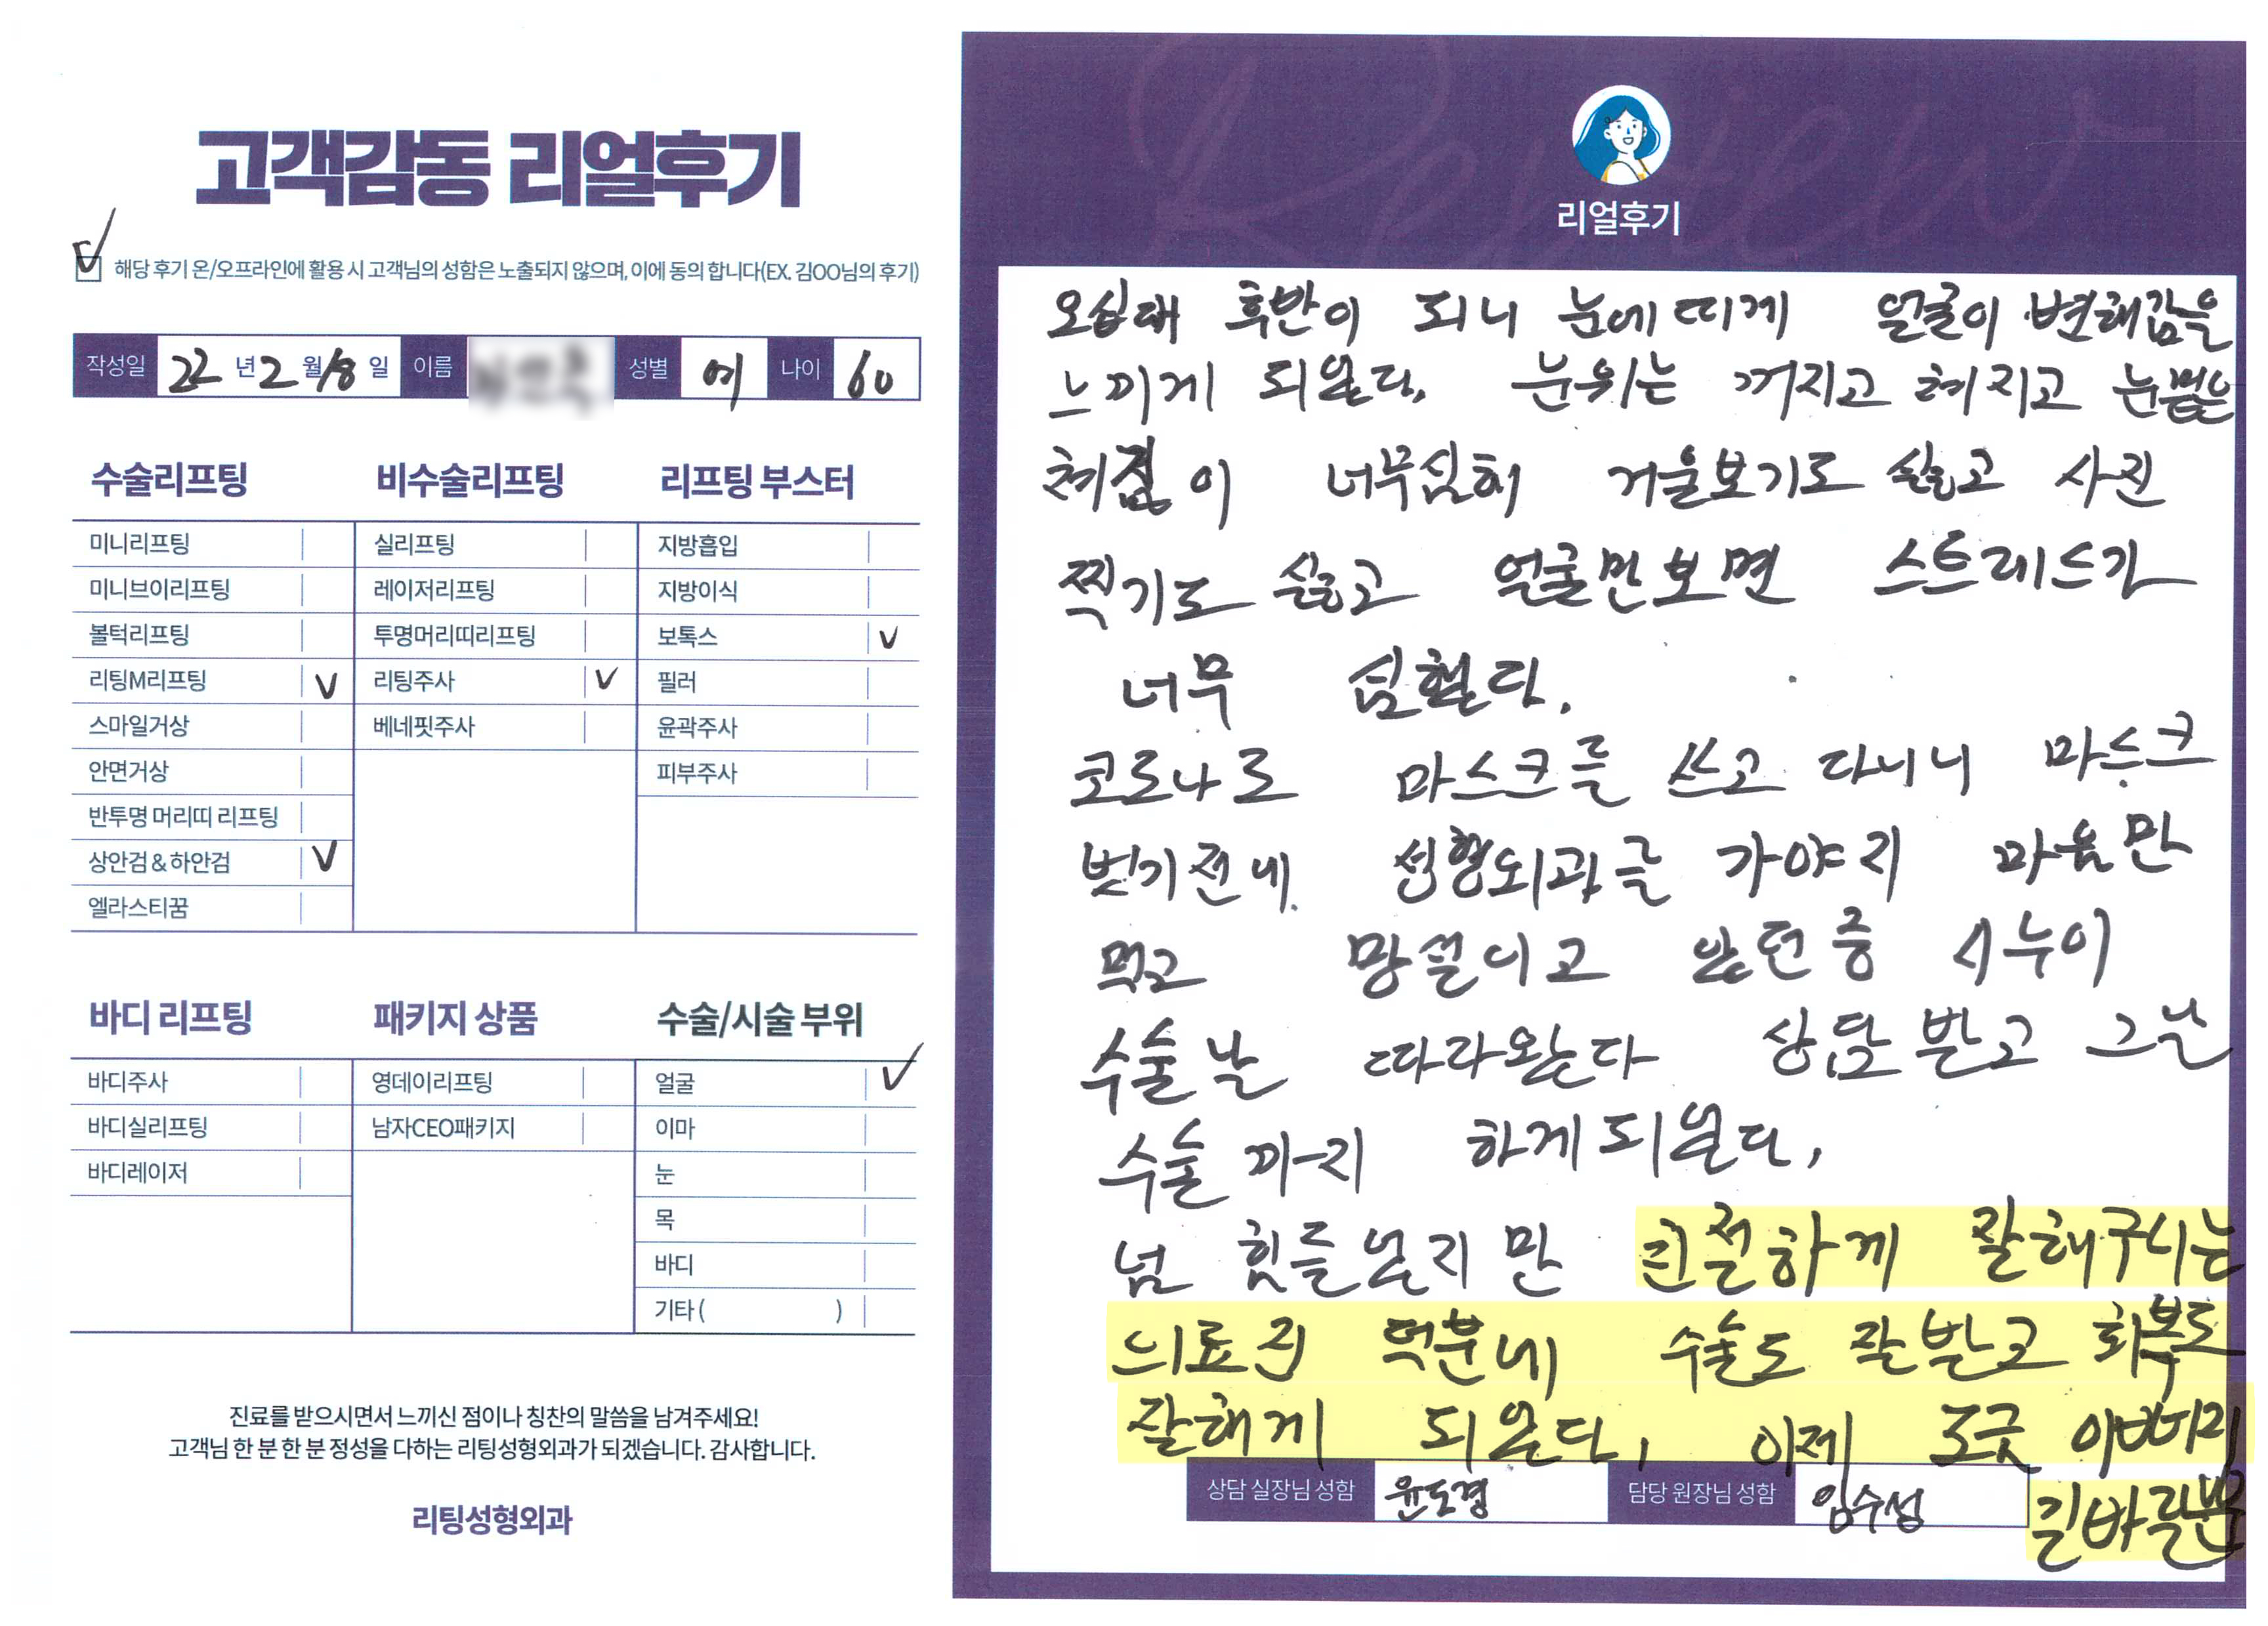 고객감동 리얼후기
해당 후기 온/오프라인에 활용 시 고객님의 성함은 노출되지 않으며, 이에 동의 합니다(EX. 김OO님의 후기)
작성일 22 년 2 월 18 일 이름 성별 여 나이 60
수술리프팅
미니리프팅
미니브이리프팅
볼턱리프팅
리팅M리프팅 ✓
스마일거상
안면거상
반투명 머리띠 리프팅
상안검&하안검 ✓
엘라스티꿈
비수술리프팅
실리프팅
레이저리프팅
투명머리띠리프팅
리팅주사 ✓
베네핏주사
리프팅 부스터
지방흡입
지방이식
보톡스 ✓
필러
윤곽주사
피부주사
바디 리프팅
바디주사
바디실리프팅
바디레이저
패키지 상품
영데이리프팅
남자CEO패키지
수술/시술 부위
얼굴 ✓
이마
눈
목
바디
기타 ( )
진료를 받으시면서 느끼신 점이나 칭찬의 말씀을 남겨주세요!
고객님 한 분 한 분 정성을 다하는 리팅성형외과가 되겠습니다. 감사합니다.
리팅성형외과
Review
리얼후기
오십대 후반이 되니 눈에 띠게 얼굴이 변해감을
느끼게 되었다. 눈위는 꺼지고 쳐지고 눈밑은
쳐짐이 너무심해 거울보기도 싫고 사진
찍기도 싫고 얼굴만보면 스트레스가
너무 심했다.
코로나로 마스크를 쓰고 다니니 마스크
벗기전에 성형외과를 가야지 마음만
먹고 망설이고 있던중 시누이
수술날 따라왔다 상담받고 그날
수술까지 하게되었다,
넘 힘들었지만 친절하게 잘해주시는
의료진 덕분에 수술도 잘받고 회복도
잘하게 되었다, 이제 조굿
상담 실장님 성함 윤도경 담당 원장님 성함 임수성